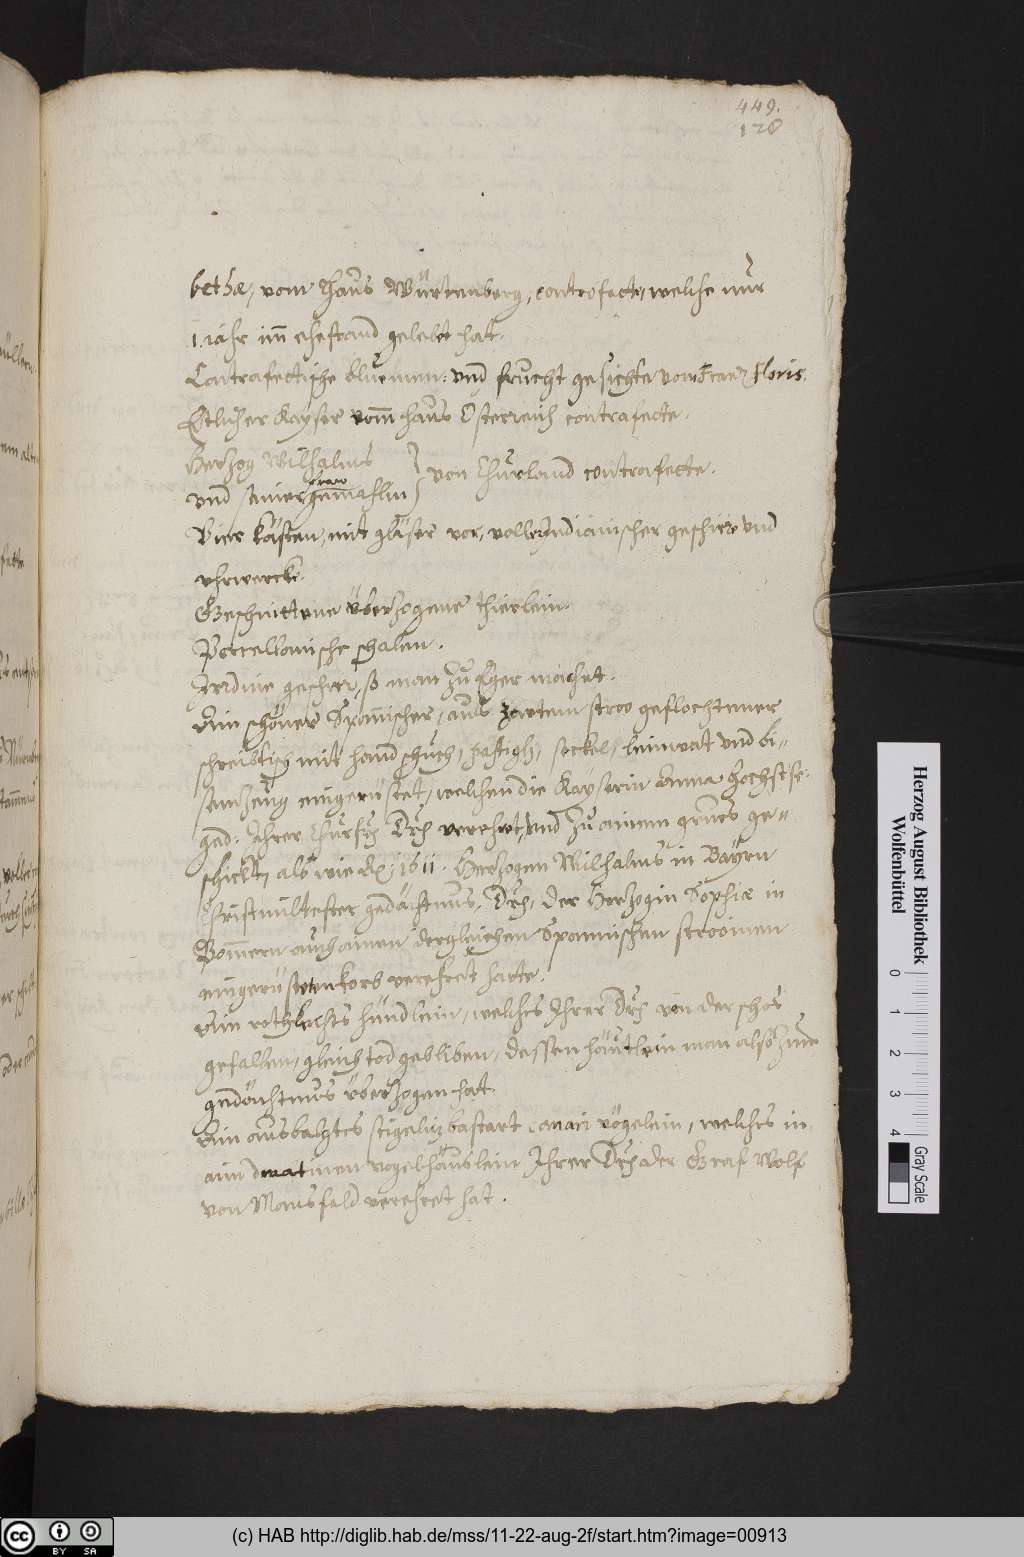 449.
128
bethæ, vom Haus Würtenberg, contrafect, welche nur
1. jahr im ehestand gelebt hat.
Contrafettische bluemen: vnd frucht gesichte von Franz Floris.
Etlicher Kayser vom haus Österreich contrafecte.
Herzog Wilhalms
fraw
und seiner gemahlin } von Churland contrafecte.
Vier kästen, mit gläser vor, voller Indianischer geschirr vnd
vhrwerckh.
Geschnittene überzogene thierlein.
Porcellanische schalen.
Irdine geschirr, so man zu Eger machet.
Ein schöner Spannischer, auß zartem stroo geflochtener
schreibtisch mit handschuch, seckel, leinwat vnd bi-
samzeug eingerüstet, welchen die Kayserin Anna hochstse:
ged: Ihrer Churfl: Drl: verehrt, vnd zu einem grues ge-
schickt, als wie Ao: 1611. Herzogen Wilhalms in Bayrn
Christmiltester gedächtnus, Drl: der Herzogin Sophiæ in
Pommern auch einen dergleichen Spannischen strooinen
eingerüsteten korb verehret hatte.
Ein rothlechts hündlein, welches Ihrer Drl: von der schos
gefallen, gleich tod gebliben, dessen häutlein man also zur
gedächtnus überzogen hat.
Ein ausbalgtes stigeliz bastart canari vögelein, welches in
ein vogelhäuslein Ihrer Drl: der Graf Wolf
von Mansfeld verehret hat.
Herzog August Bibliothek
Wolfenbüttel
0 1 2 3 4
Gray Scale
cc BY SA
(c) HAB http://diglib.hab.de/mss/11-22-aug-2f/start.htm?image=00913